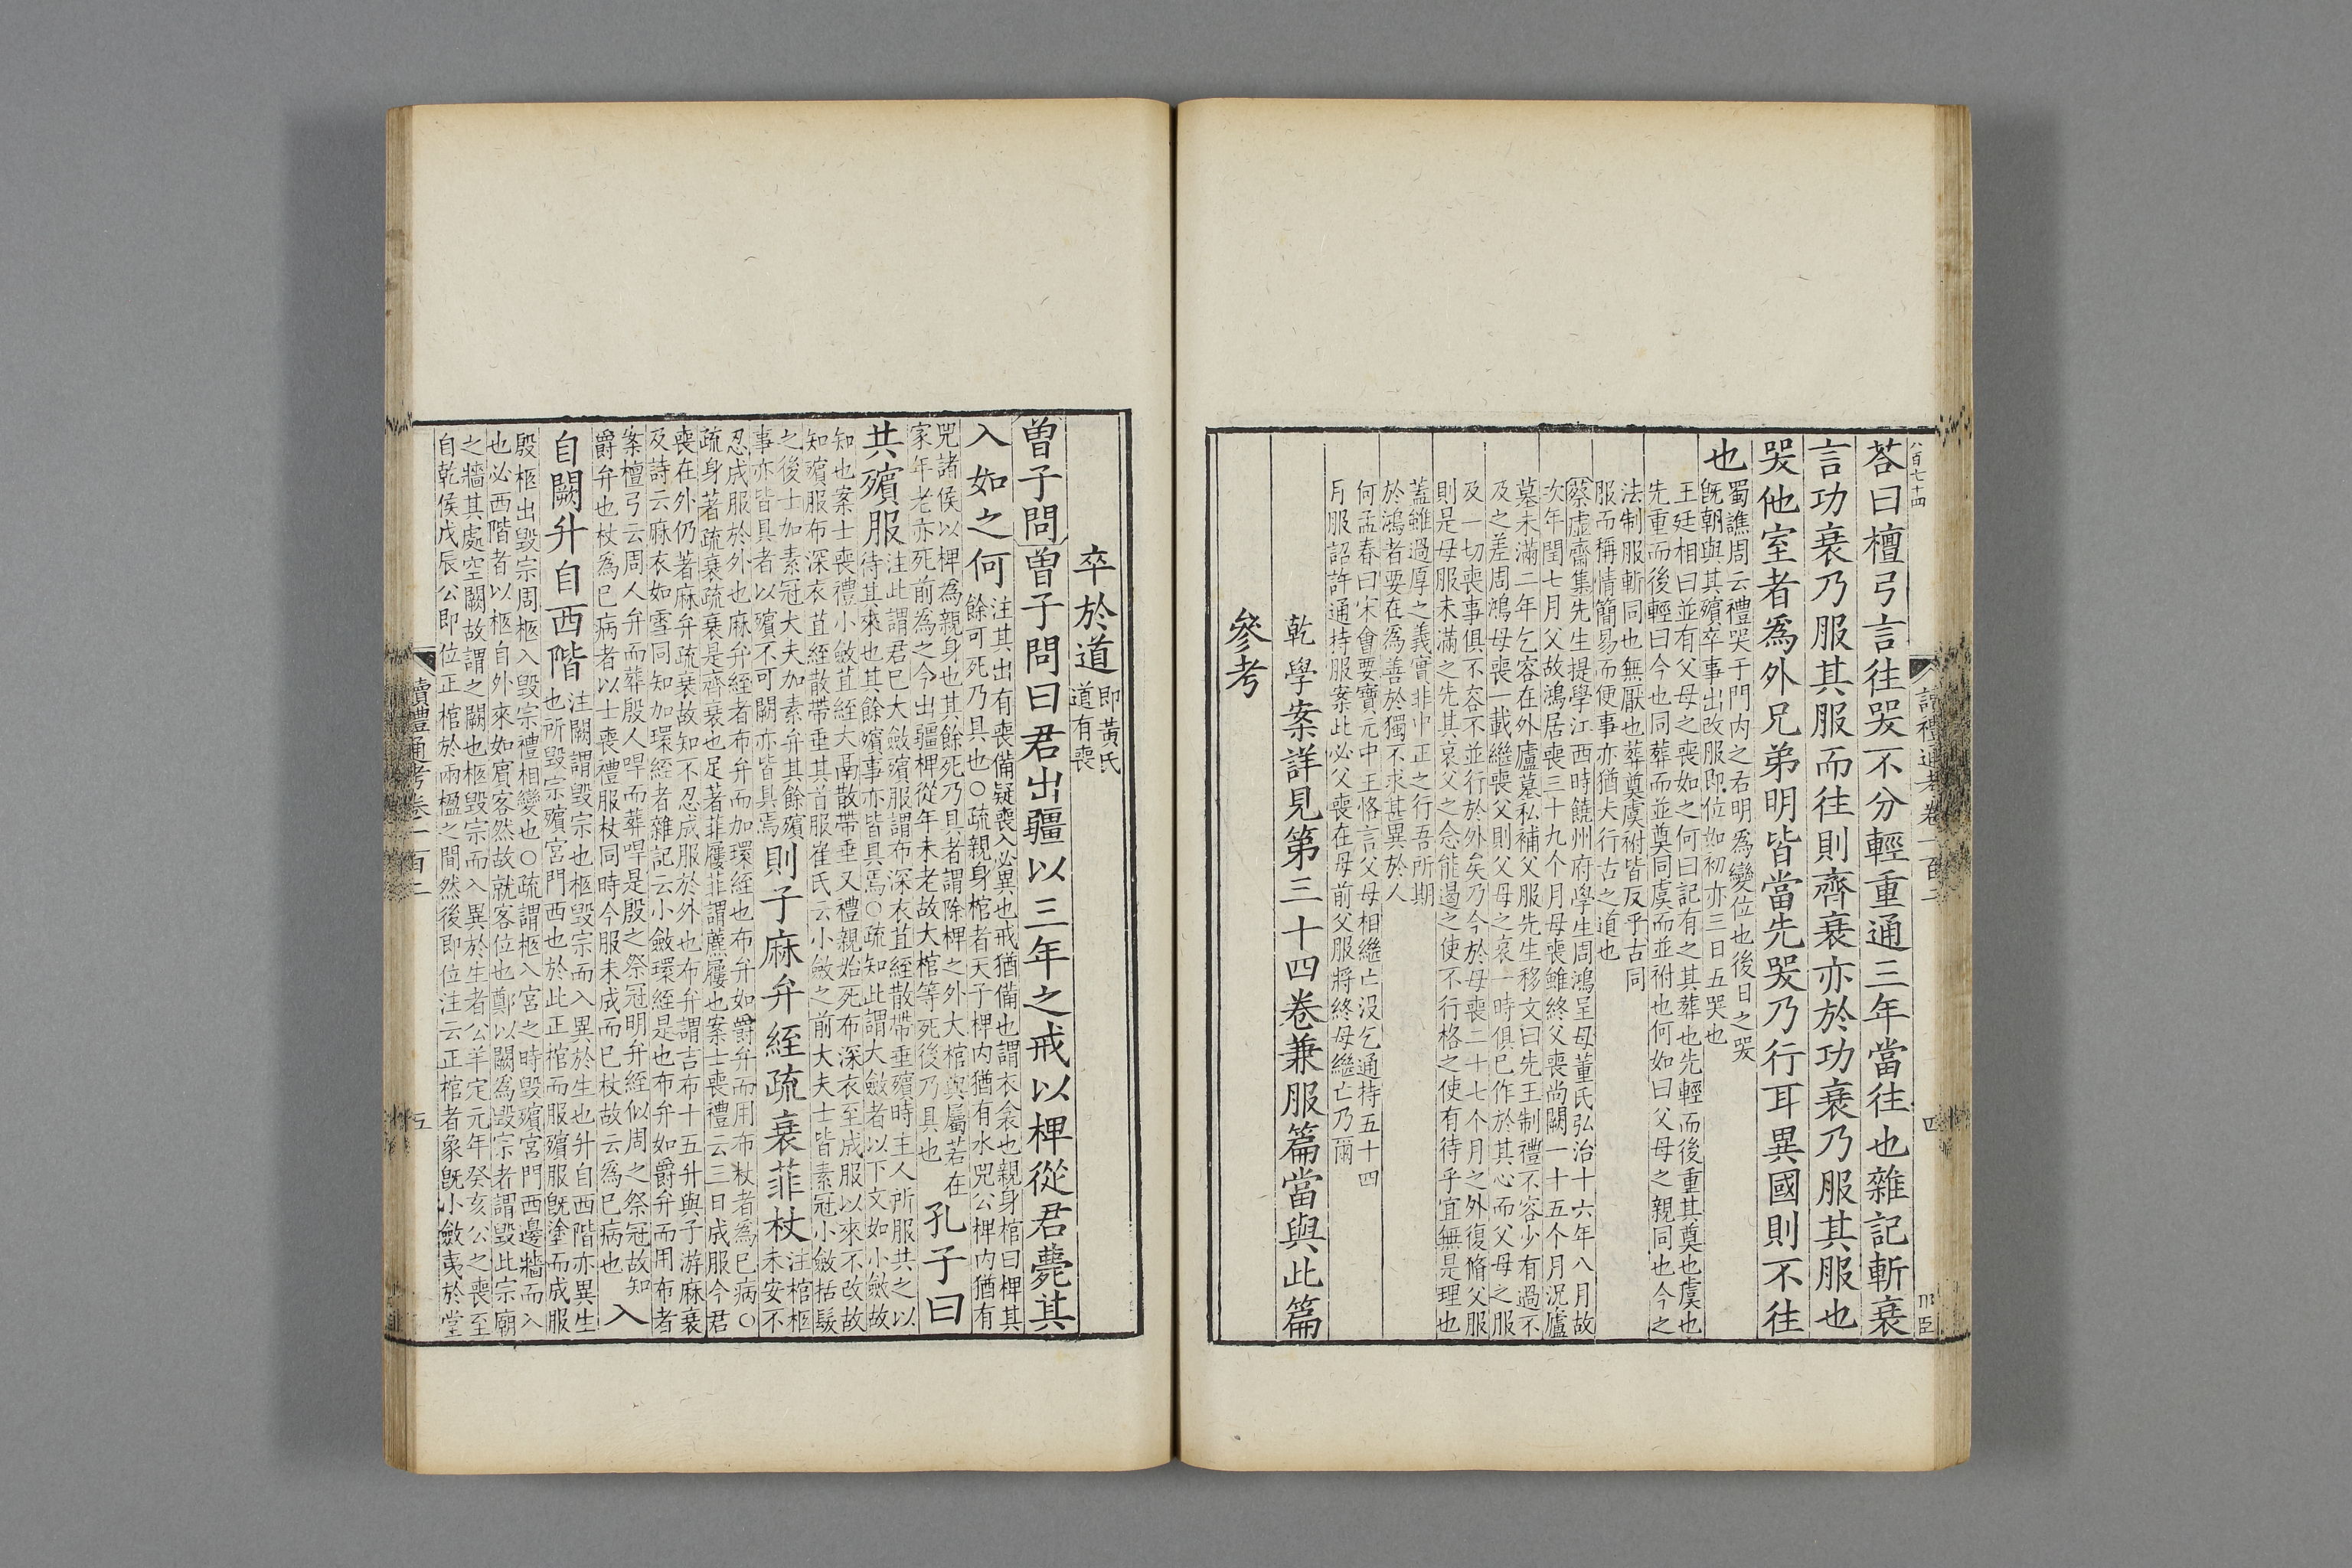 八百七十四
讀禮通考卷一百二
四
荅曰檀弓言往哭不分輕重通三年當往也雜記斬衰
言功衰乃服其服而往則齊衰亦於功衰乃服其服也
哭他室者爲外兄弟明皆當先哭乃行耳異國則不往
也
蜀譙周云禮哭于門内之右明爲變位也後日之哭
旣朝與其殯卒事出改服卽位如初亦三日五哭也
王廷相曰並有父母之喪如之何曰記有之其葬也先輕而後重其奠也虞也
先重而後輕曰今也同葬而並奠同虞而並祔也何如曰父母之親同也今之
法制服斬同也無厭也葬奠虞祔皆反乎古同
服而稱情簡易而便事亦猶夫行古之道也
蔡虛齋集先生提學江西時饒州府學生周鴻呈母董氏弘治十六年八月故
次年閏七月父故鴻居喪三十九个月母喪雖終父喪尚闕一十五个月況廬
墓未滿二年乞容在外廬墓私補父服先生移文曰先王制禮不容少有過不
及之差周鴻母喪一載繼喪父則父母之哀一時俱已作於其心而父母之服
及一切喪事俱不容不並行於外矣乃今於母喪二十七个月之外復脩父服
則是母服未滿之先其哀父之念能遏之使不行格之使有待乎宜無是理也
蓋雖過厚之義實非中正之行吾所期
於鴻者要在為善於獨不求甚異於人
何孟春曰宋會要寶元中王恪言父母相繼亡没乞通持五十四
月服詔許通持服案此必父喪在母前父服將終母繼亡乃爾
乾學案詳見第三十四卷兼服篇當與此篇
參考
卒於道
卽黃氏
道有喪
曾子問曾子問曰君出疆以三年之戒以椑從君薨其
入如之何
注其出有喪備疑喪入必異也戒猶備也謂衣衾也親身棺曰椑其
餘可死乃具也○疏親身棺者天子椑内猶有水兕公椑内猶有
兕諸侯以椑為親身也其餘死乃具者謂除椑之外大棺與屬若在
家年老亦死前為之今出疆椑從年未老故大棺等死後乃具也
孔子曰
共殯服
注此謂君已大斂殯服謂布深衣苴絰散帶垂殯時主人所服共之以
待其來也其餘殯事亦皆具焉○疏知此謂大斂者以下文如小斂故
知也案士喪禮小斂苴絰大鬲散帶垂又禮親始死布深衣至成服以來不改故
知殯服布深衣苴絰散帶垂其首服崔氏云小斂之前大夫士皆素冠小斂括髮
之後士如素冠大夫加素弁其餘殯
事亦皆具者以殯不可闕亦皆具焉
則子麻弁絰疏衰菲杖
注棺柩
未安不
忍成服於外也麻弁絰者布弁而加環絰也布弁如爵弁而用布杖者為已病○
疏身著疏衰疏衰是齊衰也足著菲屨菲謂藨屨也案士喪禮云三日成服今君
喪在外仍著麻弁疏衰故知不忍成服於外也布弁謂吉布十五升與子游麻衰
及詩云麻衣如雪同知加環絰者雜記云小斂環絰是也布弁如爵弁而用布者
案檀弓云周人弁而葬殷人冔而葬冔是殷之祭冠明弁絰似周之祭冠故知
爵弁也杖為已病者以士喪禮服杖同時今服未成而已杖故云為已病也
入
自闕升自西階
注闕謂毁宗也柩毁宗而入異於生也升自西階亦異生
也所毁宗殯宮門西也於此正棺而服殯服旣塗而成服
殷柩出毁宗周柩入毁宗禮相變也○疏謂柩入宮之時毁殯宮門西邊牆而入
也必西階者以柩自外來如賓客然故就客位也鄭以闕為毁宗者謂毁此宗廟
之牆其處空闕故謂之闕也柩毁宗而入異於生者公羊定元年癸亥公之喪至
自乾侯戊辰公卽位正棺於兩楹之間然後卽位注云正棺者象旣小斂夷於堂
讀禮通考卷一百二
五